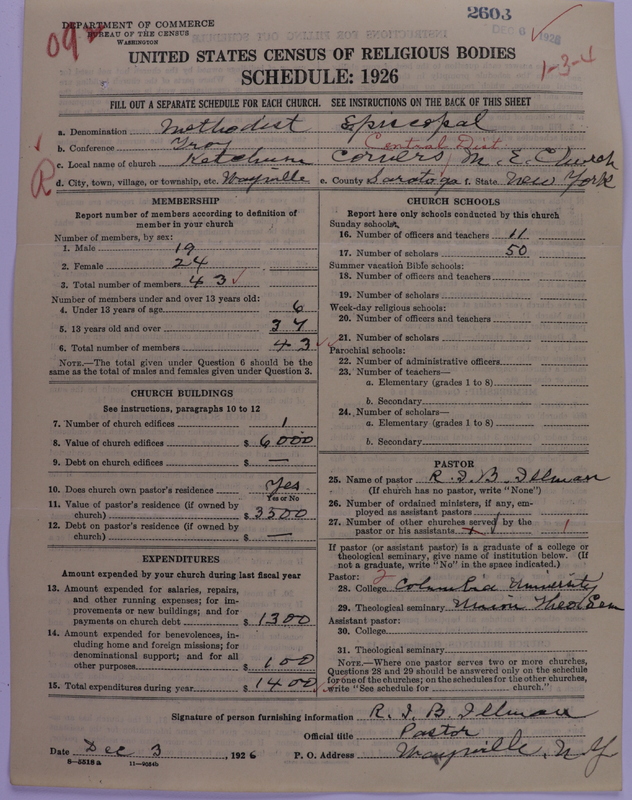 2603
DEPARTMENT OF COMMERCE
BUREAU OF THE CENSUS
WASHINGTON
DEC 6 1926
1-3-4
UNITED STATES CENSUS OF RELIGIOUS BODIES
SCHEDULE: 1926
FILL OUT A SEPARATE SCHEDULE FOR EACH CHURCH. SEE INSTRUCTIONS ON THE BACK OF THIS SHEET
a. Denomination Methodist Episcopal
b. Conference Troy Central Dist
c. Local name of church Ketchums Corners M. E. Church
R
d. City, town, village, or township, etc. Wayville e. County Saratoga f. State New York
MEMBERSHIP
Report number of members according to definition of
member in your church
Number of members, by sex:
1. Male 19
2. Female 24
3. Total number of members 43
Number of members under and over 13 years old:
4. Under 13 years of age 6
5. 13 years old and over 37
6. Total number of members 43
NOTE.—The total given under Question 6 should be the
same as the total of males and females given under Question 3.
CHURCH BUILDINGS
See instructions, paragraphs 10 to 12
7. Number of church edifices 1
8. Value of church edifices $ 6000
9. Debt on church edifices $ —
10. Does church own pastor's residence Yes
Yes or No
11. Value of pastor's residence (if owned by
church) $ 3500
12. Debt on pastor's residence (if owned by
church) $ —
EXPENDITURES
Amount expended by your church during last fiscal year
13. Amount expended for salaries, repairs,
and other running expenses; for im-
provements or new buildings; and for
payments on church debt $ 1300
14. Amount expended for benevolences, in-
cluding home and foreign missions; for
denominational support; and for all
other purposes $ 100
15. Total expenditures during year $ 1400
CHURCH SCHOOLS
Report here only schools conducted by this church
Sunday schools:
16. Number of officers and teachers 11
17. Number of scholars 50
Summer vacation Bible schools:
18. Number of officers and teachers
19. Number of scholars
Week-day religious schools:
20. Number of officers and teachers
21. Number of scholars
Parochial schools:
22. Number of administrative officers
23. Number of teachers—
a. Elementary (grades 1 to 8)
b. Secondary
24. Number of scholars—
a. Elementary (grades 1 to 8)
b. Secondary
PASTOR
25. Name of pastor R. I. B. Illman
(If church has no pastor, write "None")
26. Number of ordained ministers, if any, em-
ployed as assistant pastors
27. Number of other churches served by the
pastor or his assistants 1
If pastor (or assistant pastor) is a graduate of a college or
theological seminary, give name of institution below. (If
not a graduate, write "No" in the space indicated.)
Pastor: 2
28. College Columbia University
29. Theological seminary Union Theo Sem
Assistant pastor:
30. College
31. Theological seminary
NOTE.—Where one pastor serves two or more churches,
Questions 28 and 29 should be answered only on the schedule
for one of the churches; on the schedules for the other churches,
write "See schedule for church."
Signature of person furnishing information R. I. B. Illman
Official title Pastor
Date Dec 3, 1926 P. O. Address Wayville, N.Y.
8—5518 a 11—9054b